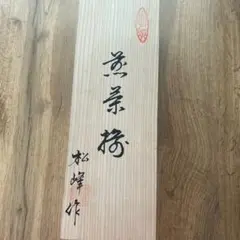 煎茶揃
松峰作